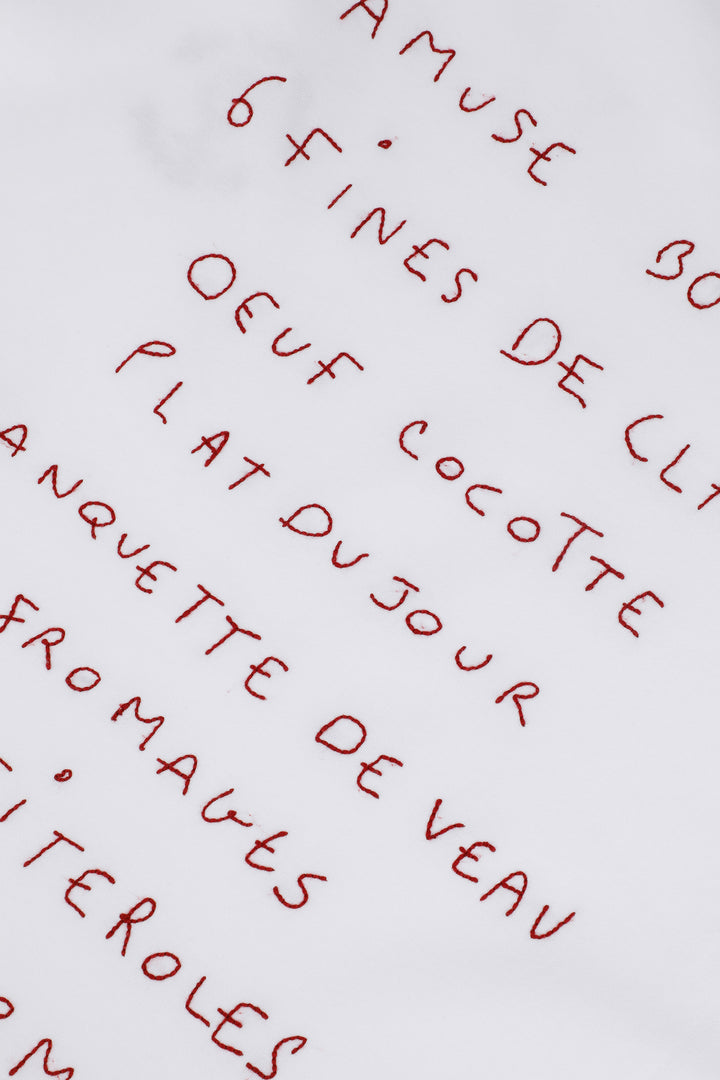 AMUSE BO
6 FINES DE CLA
OEUF COCOTTE
PLAT DU JOUR
ANQUETTE DE VEAU
FROMAGES
ITEROLES
OM